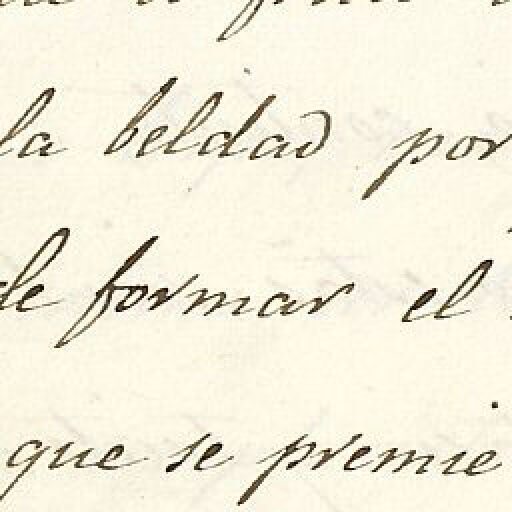 la beldad por
de formar el
que se premie